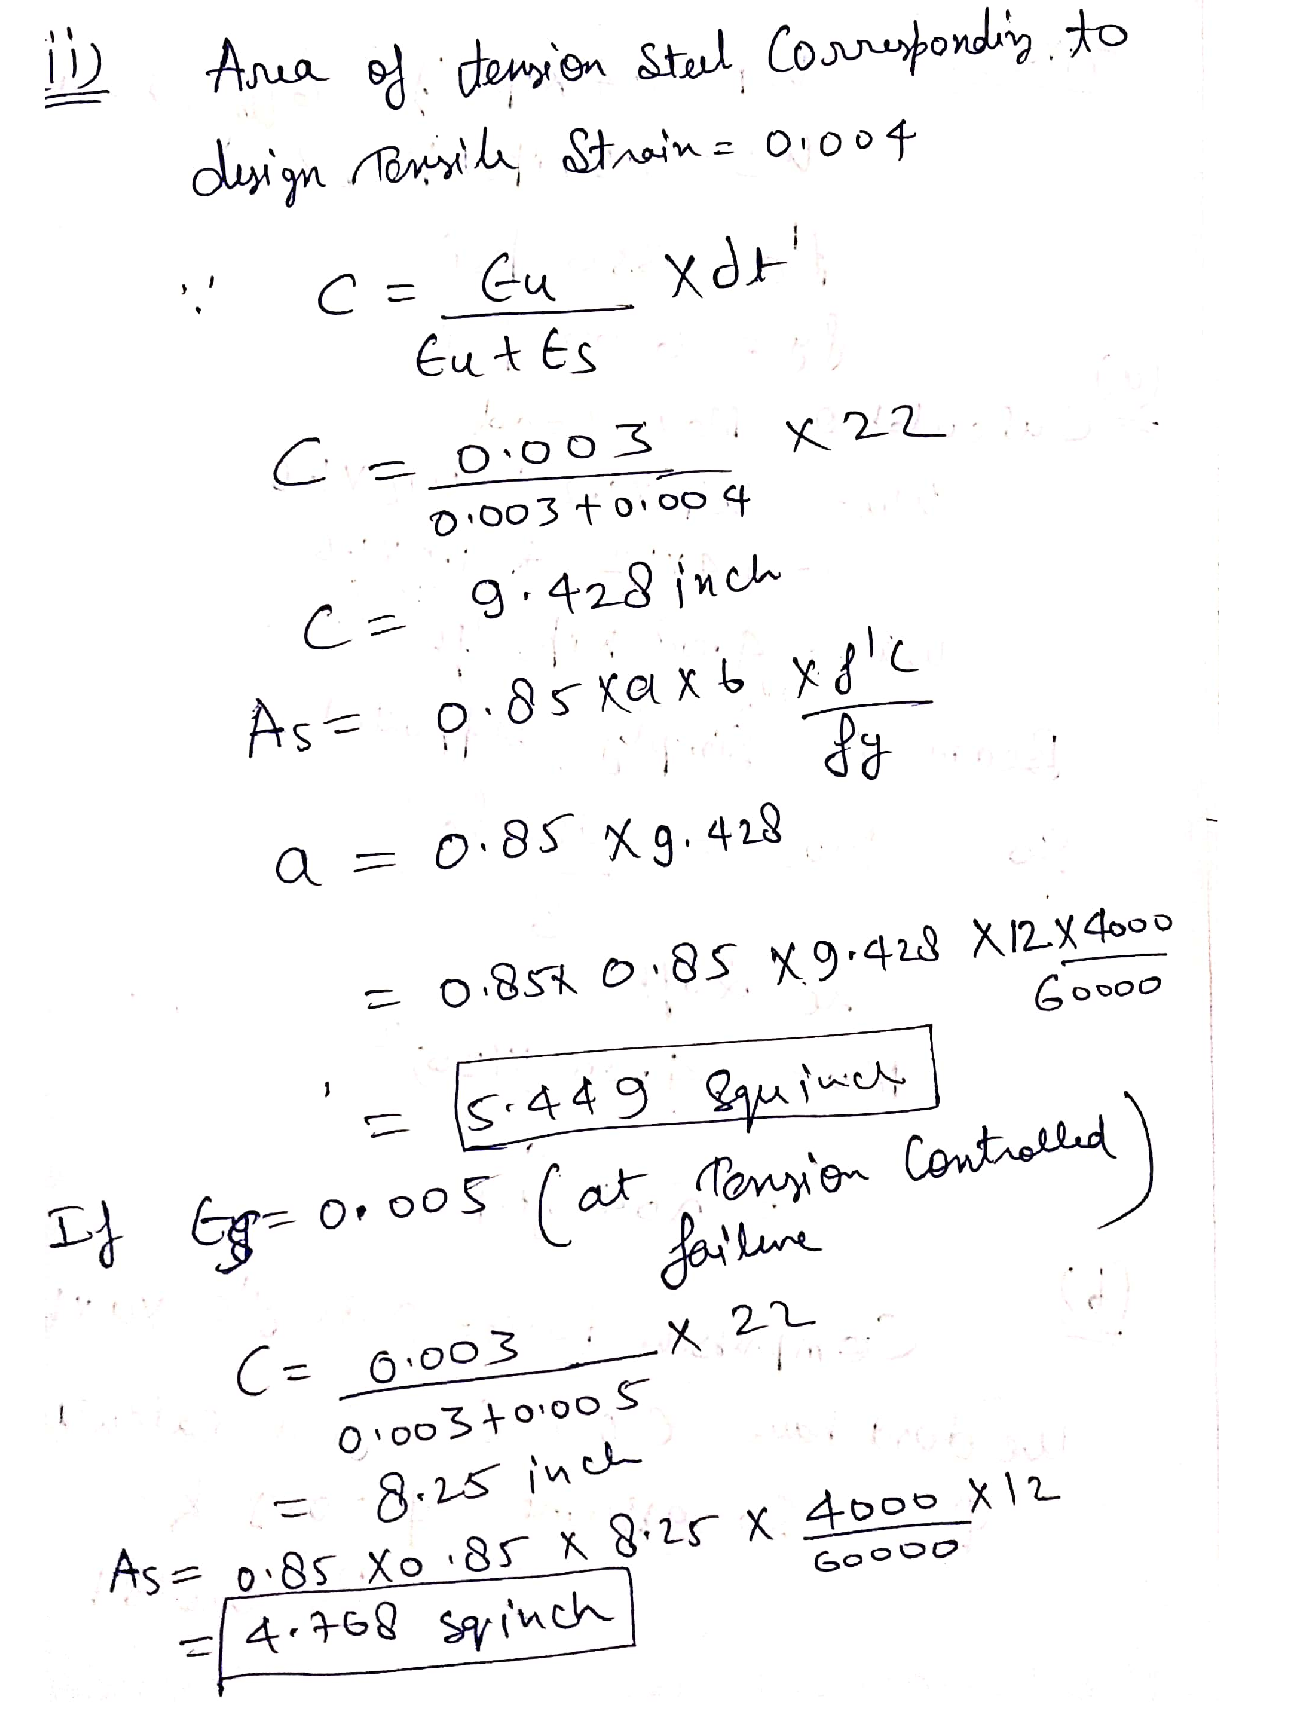 ii) Area of tension Steel Corresponding to
design Tensile Strain = 0.004
∵ C = ϵu / (ϵu + ϵs) × dt
C = 0.003 / (0.003 + 0.004) × 22
C = 9.428 inch
As = 0.85 × a × b × f'c / fy
a = 0.85 × 9.428
= 0.85 × 0.85 × 9.428 × 12 × 4000 / 60000
= 5.449 Squ inch
If ϵs = 0.005 (at Tension Controlled
failure)
C = 0.003 / (0.003 + 0.005) × 22
= 8.25 inch
As = 0.85 × 0.85 × 8.25 × 4000 / 60000 × 12
= 4.768 sqinch